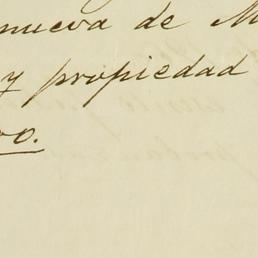 nueva de M
y propiedad
ro.